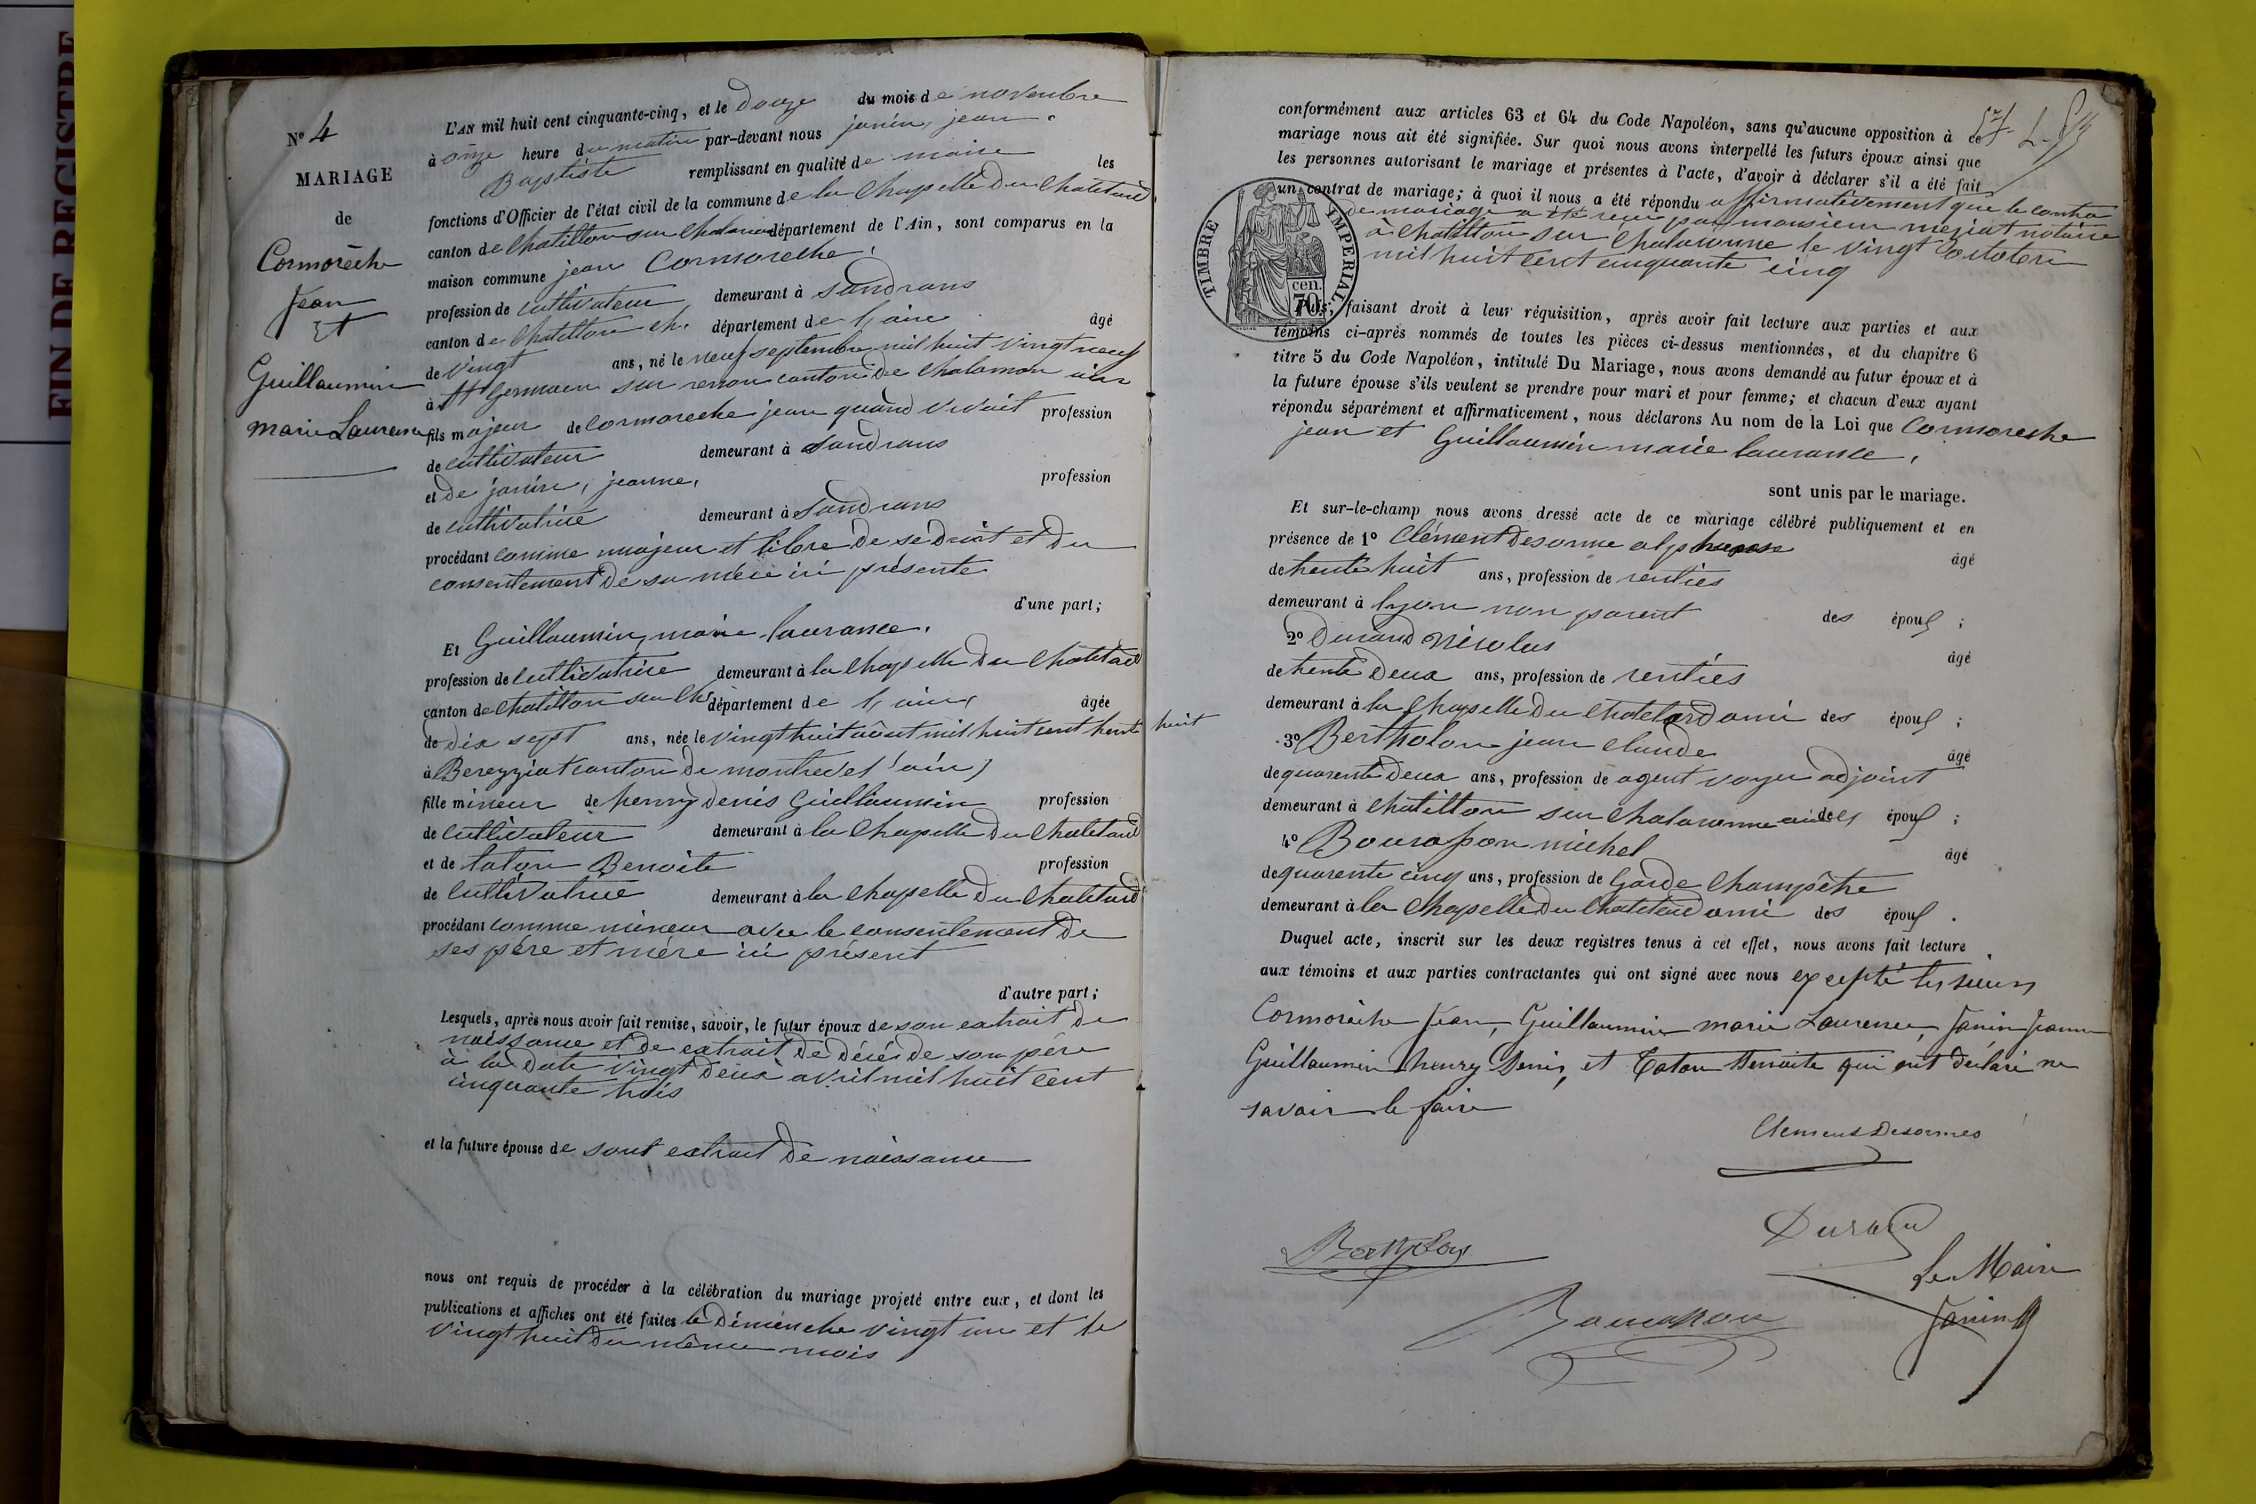 FIN DE REGISTRE
N° 4
MARIAGE
de
Cormorèche
Jean
Et
Guillaumin
marie Laurence
L'AN mil huit cent cinquante-cinq, et le Douze du mois de novembre
à onze heure du matin par-devant nous janin, jean.
Baptiste remplissant en qualité de maire les
fonctions d'Officier de l'état civil de la commune de la Chapelle Du Chatelard
canton de Chatillon sur Chalaronne département de l'Ain, sont comparus en la
maison commune jean Cormoreche,
profession de cultivateur demeurant à Sandrans
canton de Chatillon ch. département de l'ain âgé
de vingt ans, né le neuf septembre mil huit vingt neuf
à St Germain sur renon canton de Chalamon ain
fils majeur de Cormoreche jean quand vivait profession
de cultivateur demeurant à Sandrans
et de janin, jeanne, profession
de cultivatrice demeurant à Sandrans
procédant comme majeur et libre De se Droit et Du
consentement De sa mère ici présente
d'une part;
Et Guillaumin, marie laurance.
profession de Cultivatrice demeurant à la Chapelle Du Chatelard
canton de Chatillon sur Ch. département de l'ain, âgée
de dix sept ans, née le vingt huit aôut mil huit cent trent huit
à Bereyziat canton De montrevel (ain)
fille mineur de henry denis Guillaumin profession
de Cultivateur demeurant à la Chapelle Du Chatelard
et de taton Benoite profession
de Cultivatrice demeurant à la Chapelle Du Chatelard
procédant comme mineur avec le consentement De
ses père et mère ici présent
d'autre part;
Lesquels, après nous avoir fait remise, savoir, le futur époux de son extrait De
naissance et De extrait De Décé de son père
à la Date vingt Deux avril mil huit Cent
cinquante trois
et la future épouse de sont extrait De naissance
nous ont requis de procéder à la célébration du mariage projeté entre eux, et dont les
publications et affiches ont été faites le Démènche vingt un et le
vingt huit Du même mois
conformément aux articles 63 et 64 du Code Napoléon, sans qu'aucune opposition à ce
mariage nous ait été signifiée. Sur quoi nous avons interpellé les futurs époux ainsi que
les personnes autorisant le mariage et présentes à l'acte, d'avoir à déclarer s'il a été fait
un contrat de mariage; à quoi il nous a été répondu affirmativement que le contra
de mariage a été reçu par monsieur meziat notaire
à Chatillon sur Chalaronne le vingt octobre
mil huit cent cinquante cinq
TIMBRE IMPERIAL
70 cen.
Puis, faisant droit à leur réquisition, après avoir fait lecture aux parties et aux
témoins ci-après nommés de toutes les pièces ci-dessus mentionnées, et du chapitre 6
titre 5 du Code Napoléon, intitulé Du Mariage, nous avons demandé au futur époux et à
la future épouse s'ils veulent se prendre pour mari et pour femme; et chacun d'eux ayant
répondu séparément et affirmativement, nous déclarons Au nom de la Loi que Cormoreche
jean et Guillaumin marie laurance,
sont unis par le mariage.
Et sur-le-champ nous avons dressé acte de ce mariage célébré publiquement et en
présence de 1° Clément Desorme alphonse âgé
de trente huit ans, profession de renties
demeurant à lyon non parent des époux ;
2° Durand Nicolas âgé
de trente Deux ans, profession de renties
demeurant à la Chapelle Du Chatelard ami des époux ;
3° Bertholon jean claude âgé
de quarente Deux ans, profession de agent voyer adjoint
demeurant à Chatillon sur Chalaronne ami des époux ;
4° Bourapon michel âgé
de quarente cinq ans, profession de Garde Champêtre
demeurant à la Chapelle Du Chatelard ami des époux .
Duquel acte, inscrit sur les deux registres tenus à cet effet, nous avons fait lecture
aux témoins et aux parties contractantes qui ont signé avec nous excepté les sieurs
Cormorèche Jean, Guillaumin marie Laurence, Janin Jeanne
Guillaumin henry Denis, et Taton Benoite qui ont déclaré ne
savoir le faire
Clement Desormes
Durand
Bertholon
Le Maire
Bourapon
Janin